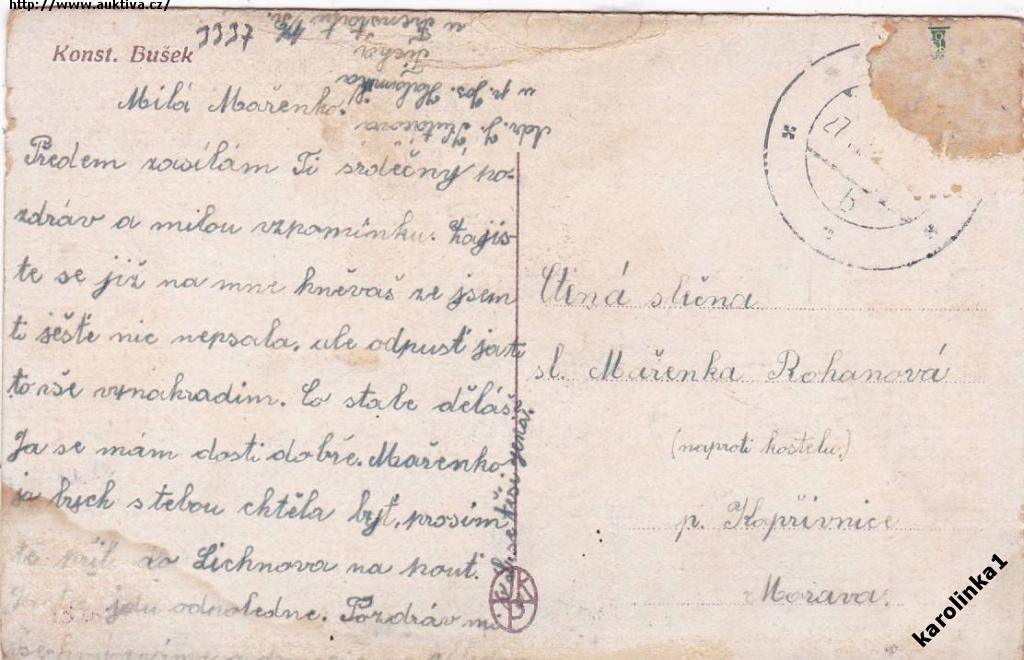 http://www.auktiva.cz/
Konst. Bušek
3337
Milá Mařenko.
Předem zasílám Ti srdečný po-
zdráv a milou vzpomínku. Zajis-
te se již na mne hněvaš ze jsem
ti ješťe nic nepsala, ale odpusť ja ti
to vše vznahradim. Co stale děláš
Ja se mám dosti dobře. Mařenko
ja bych s tebou chtěla byť, prosim
te přib do Lichnova na pouť.
jdu odpoledne. Pozdráv
Adr. J.
u p. Jos.
Tichá
u Frenštatu
Ctěná slečna
sl. Mařenka Rohanová
(naproti kostelu)
p. Kopřivnice
Morava.
27
b
karolinka1